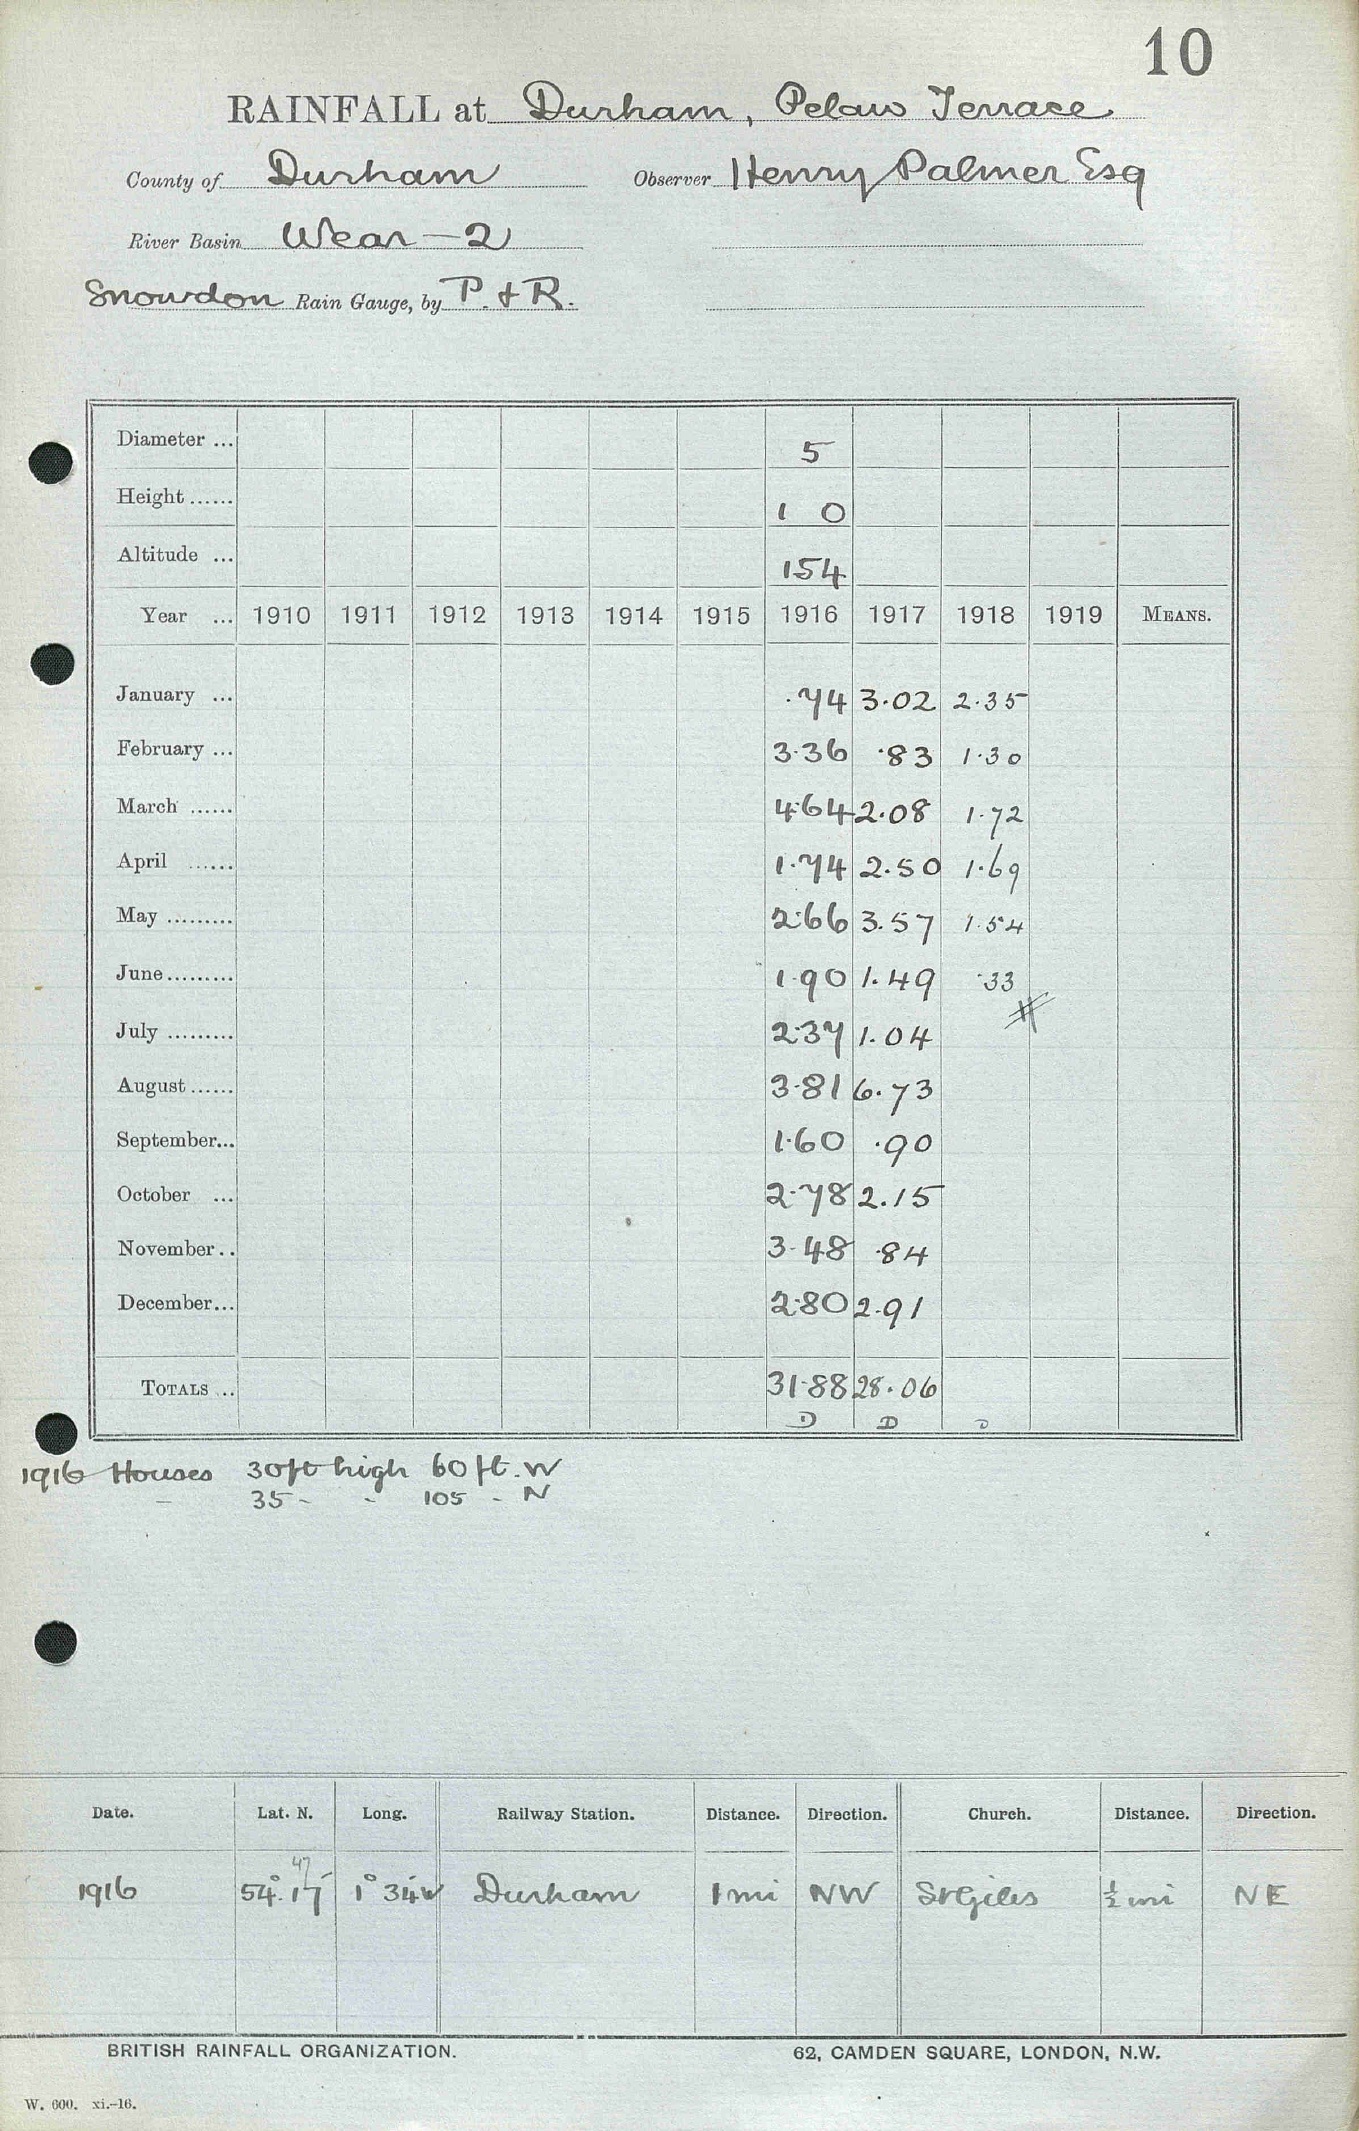 10
RAINFALL at Durham, Pelaw Terrace
County of Durham Observer Henry Palmer Esq
River Basin Wear - 2
Snowdon Rain Gauge, by P. & R.
Diameter ... 5
Height ...... 1 0
Altitude ... 154
Year ... 1910 1911 1912 1913 1914 1915 1916 1917 1918 1919 MEANS.
January ... .74 3.02 2.35
February ... 3.36 .83 1.30
March ...... 4.64 2.08 1.72
April ...... 1.74 2.50 1.69
May ......... 2.66 3.57 1.54
June......... 1.90 1.49 .33
July ......... 2.37 1.04
August ...... 3.81 6.73
September... 1.60 .90
October ... 2.78 2.15
November.. 3.48 .84
December... 2.80 2.91
TOTALS ... 31.88 28.06
D D D
1916 Houses 30ft high 60 ft. W
- 35 - - 105 - N
Date. Lat. N. Long. Railway Station. Distance. Direction. Church. Distance. Direction.
47
1916 54°.17' 1° 34'W Durham 1 mi NW St Giles ½ mi NE
BRITISH RAINFALL ORGANIZATION. 62, CAMDEN SQUARE, LONDON, N.W.
W. 600. xi.-16.